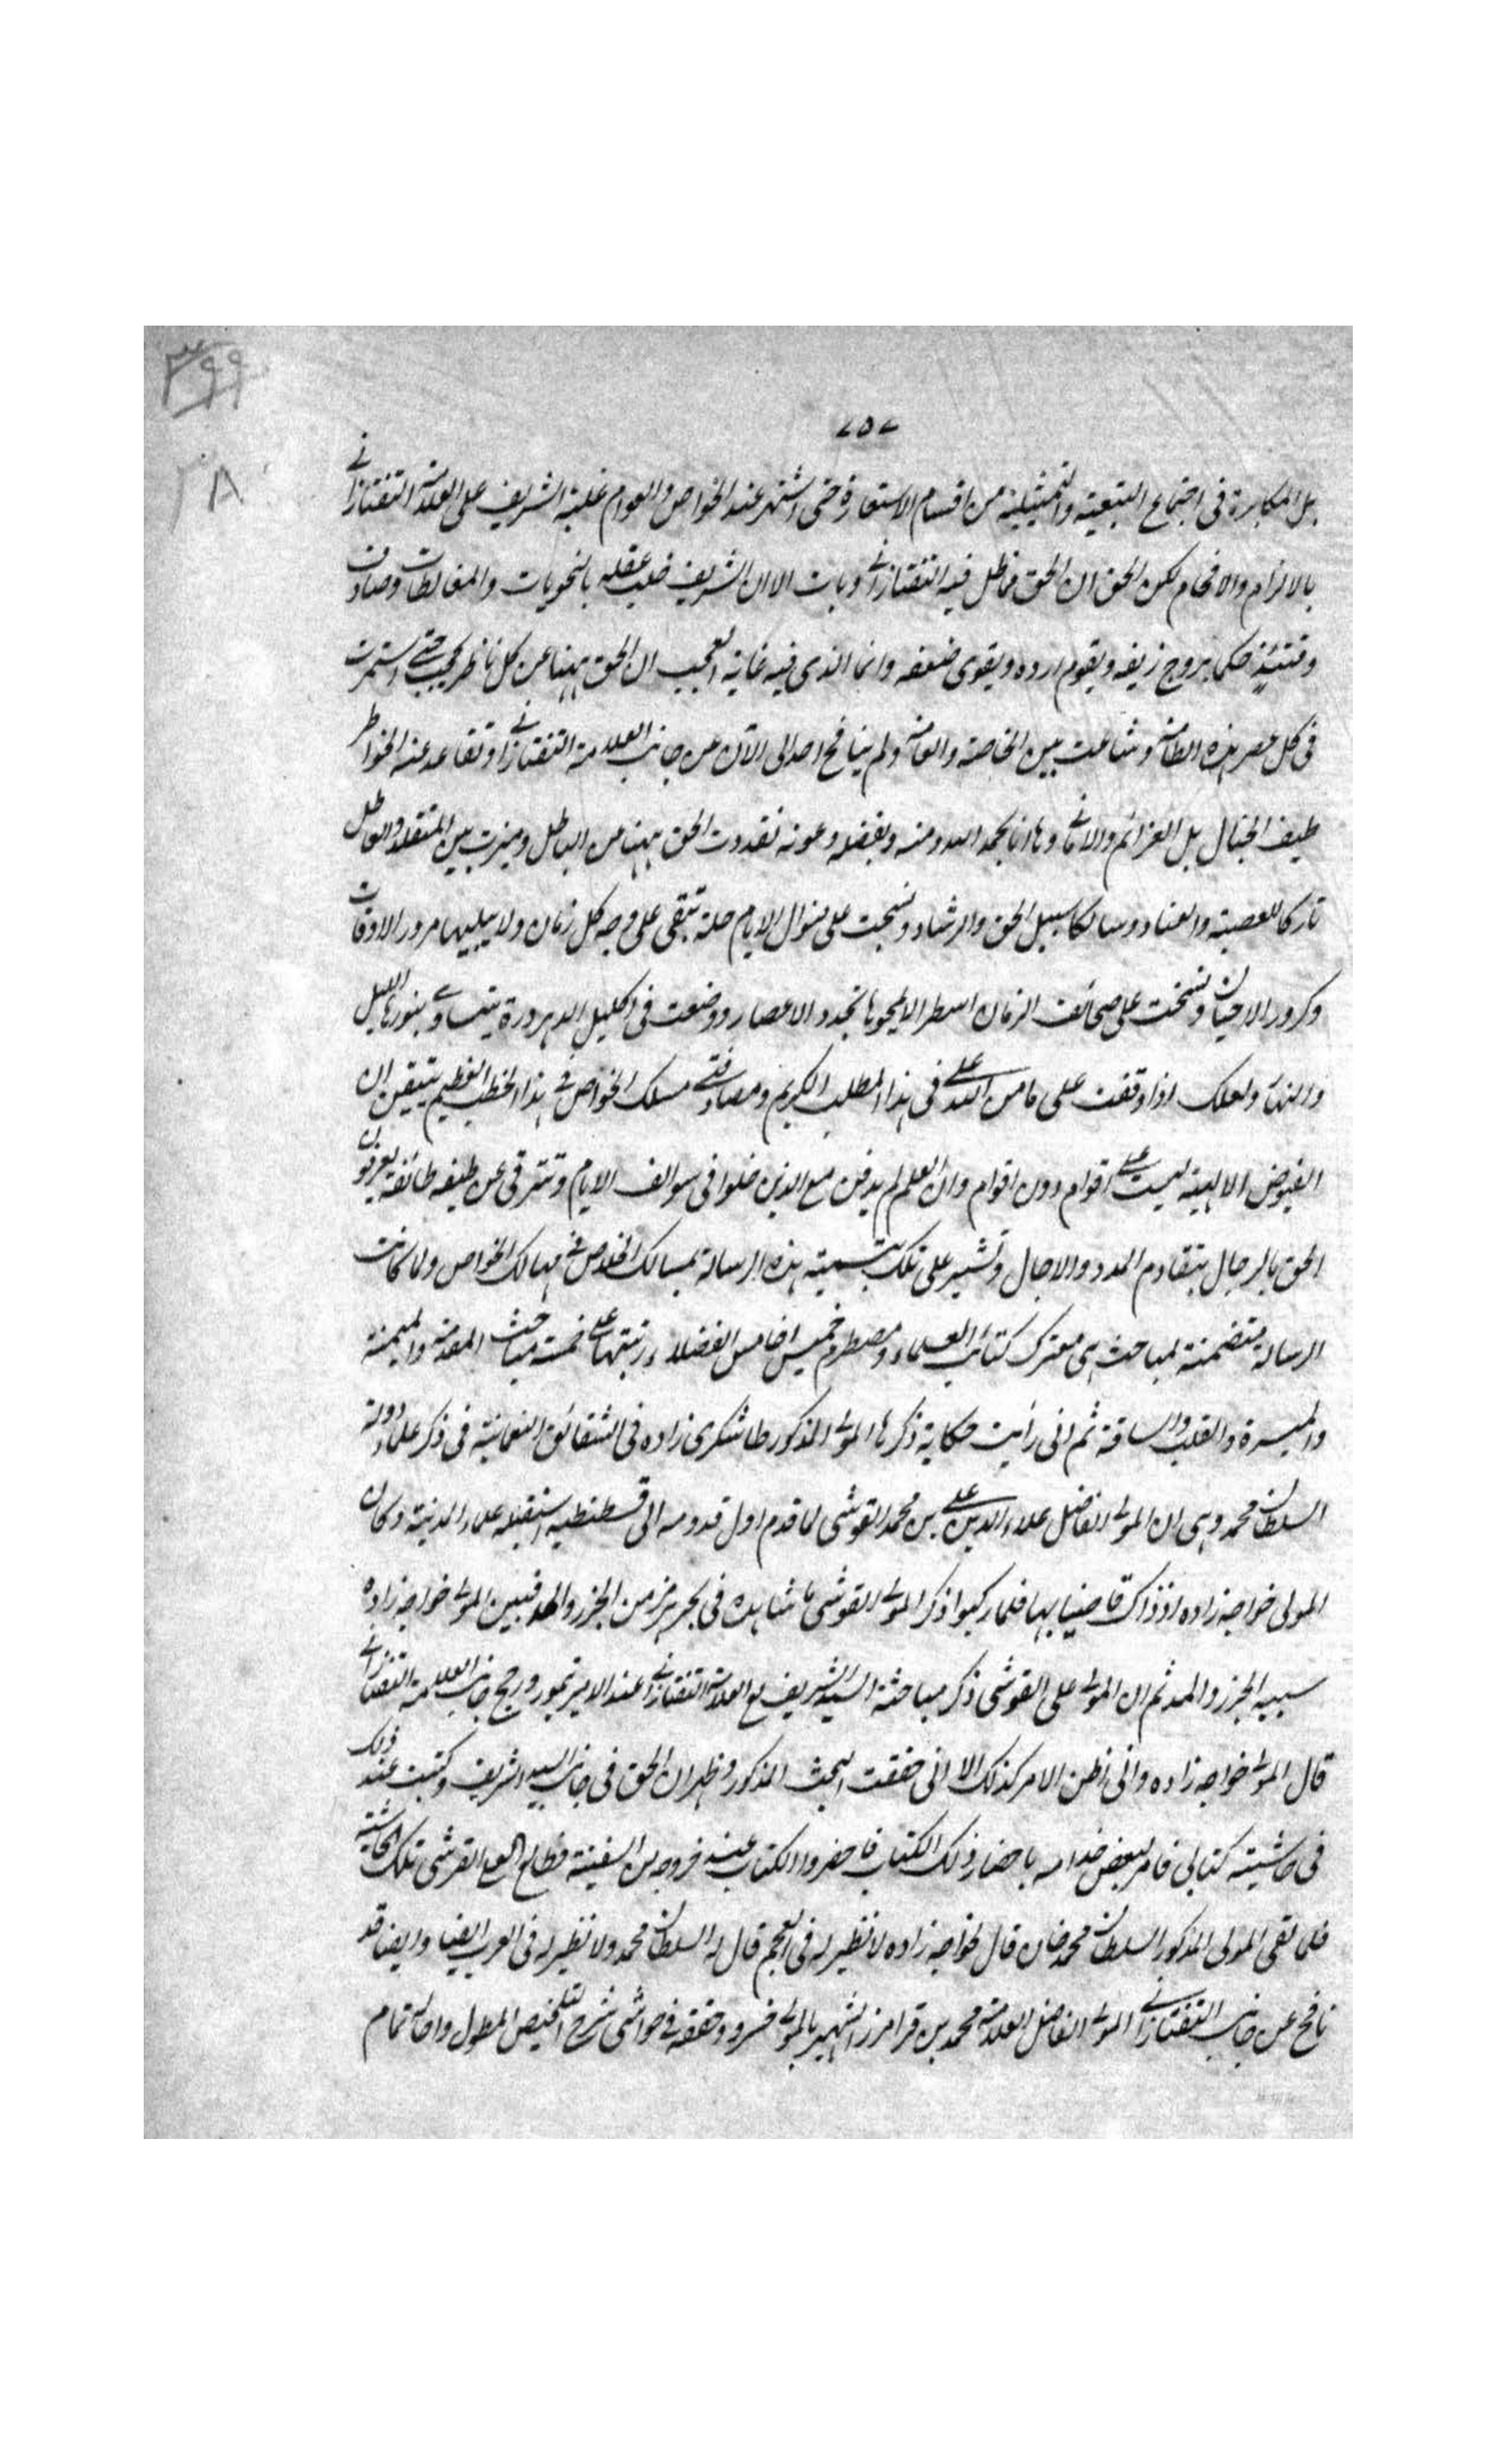 ٣٩٩
٢٨
٧٥٧
بل المكابرة فى اجتماع التبعية والتمثيلية من اقسام الاستعارة حتى اشتهر عند الخواص والعوام غلبة الشريف على العلامة التفتازانى
بالالزام والافحام لكن الحق ان الحق فما ظل فيه التفتازانى وبات الا ان الشريف خلب عقله بالتحويات والمغالطات وصادف
وقتئذ حكما يروج زيفه ويقوم اوده ويقوى ضعفه وانما الذى فيه غاية العجب ان الحق ههنا عن كل ناظر محتجب حتى استمرت
فى كل عصر هذه الطامة وشاعت بين الخاصة والعامة ولم ينافح احد الى الآن عن جانب العلامة التفتازانى وتقاعد عنه الخواطر
طيف الخيال بل العزائم والامانى وها انا بحمد الله ومنه وبفضله وعونه نقدت الحق ههنا من الباطل وميزت بين المتقلد والعاطل
تاركا للعصبية والعناد وسالكا سبيل الحق والرشاد ونسجت على منوال الايام حلة تبقى على وجه كل زمان ولا يبليها مرور الاوقات
وكرور الاحيان ونسخت على صحائف الزمان اسطرا لا يمحوها تجدد الاعصار ووضعت فى اكليل الدهر درة يتساوى بنورها الليل
والنهار ولعلك اذا وقفت على ما من الله على فى هذا المطلب الكريم ومصادفتى مسلك الخواص فى هذا الخطب العظيم تتيقن ان
الفيوض الالهية ليست على اقوام دون اقوام وان العلم لم يدفن مع الذين خلوا فى سوالف الايام وتترقى عن طيفه طائفة يعرفون
الحق بالرجال بتقادم المدد والاجال وتشير على تلك بتسمية هذه الرسالة بمسالك الخلاص فى مهالك الخواص ولما كانت
الرسالة متضمنة لمباحث هى معترك كتائب العلماء ومصطرم خميس اخامس الفضلاء رتبتها على خمسة مباحث المقدمة والميمنة
والميسرة والقلب والساقة ثم انى رأيت حكاية ذكرها المولى المذكور طاشكرى زاده فى الشقائق النعمانية فى ذكر علماء دولة
السلطان محمد وهى ان المولى الفاضل علاء الدين على بن محمد القوشى لما قدم اول قدومه الى قسطنطنية استقبله علماء المدينة وكان
المولى خواجه زاده اذ ذاك قاضيا بها فلما ركبوا ذكر المولى القوشى ما شاهده فى بحر هرمز من الجزر والمد فبين المولى خواجه زاده
سبب الجزر والمد ثم ان المولى على القوشى ذكر مباحثة السيد الشريف مع العلامة التفتازانى عند الامير تيمور ورجح جانب العلامة التفتازانى
قال المولى خواجه زاده وانى اظن الامر كذلك الا انى حققت البحث المذكور وظهر ان الحق فى جانب السيد الشريف وكتبت عند ذلك
فى حاشية كتابى فامر لبعض خدامه باحضار ذلك الكتاب فاحضروا الكتاب عند خروجه من السفينة فطالع المولى القوشى تلك الحاشية
فلما لقى المولى المذكور السلطان محمد خان قال خواجه زاده لا نظير له فى العجم قال له السلطان محمد ولا نظير له فى العرب ايضا وايضا قد
نافح عن جانب التفتازانى المولى الفاضل العلامة محمد بن قرامرز الشهير بالمولى خسرو وحققه فى حواشى شرح التلخيص المطول وافاد تمام